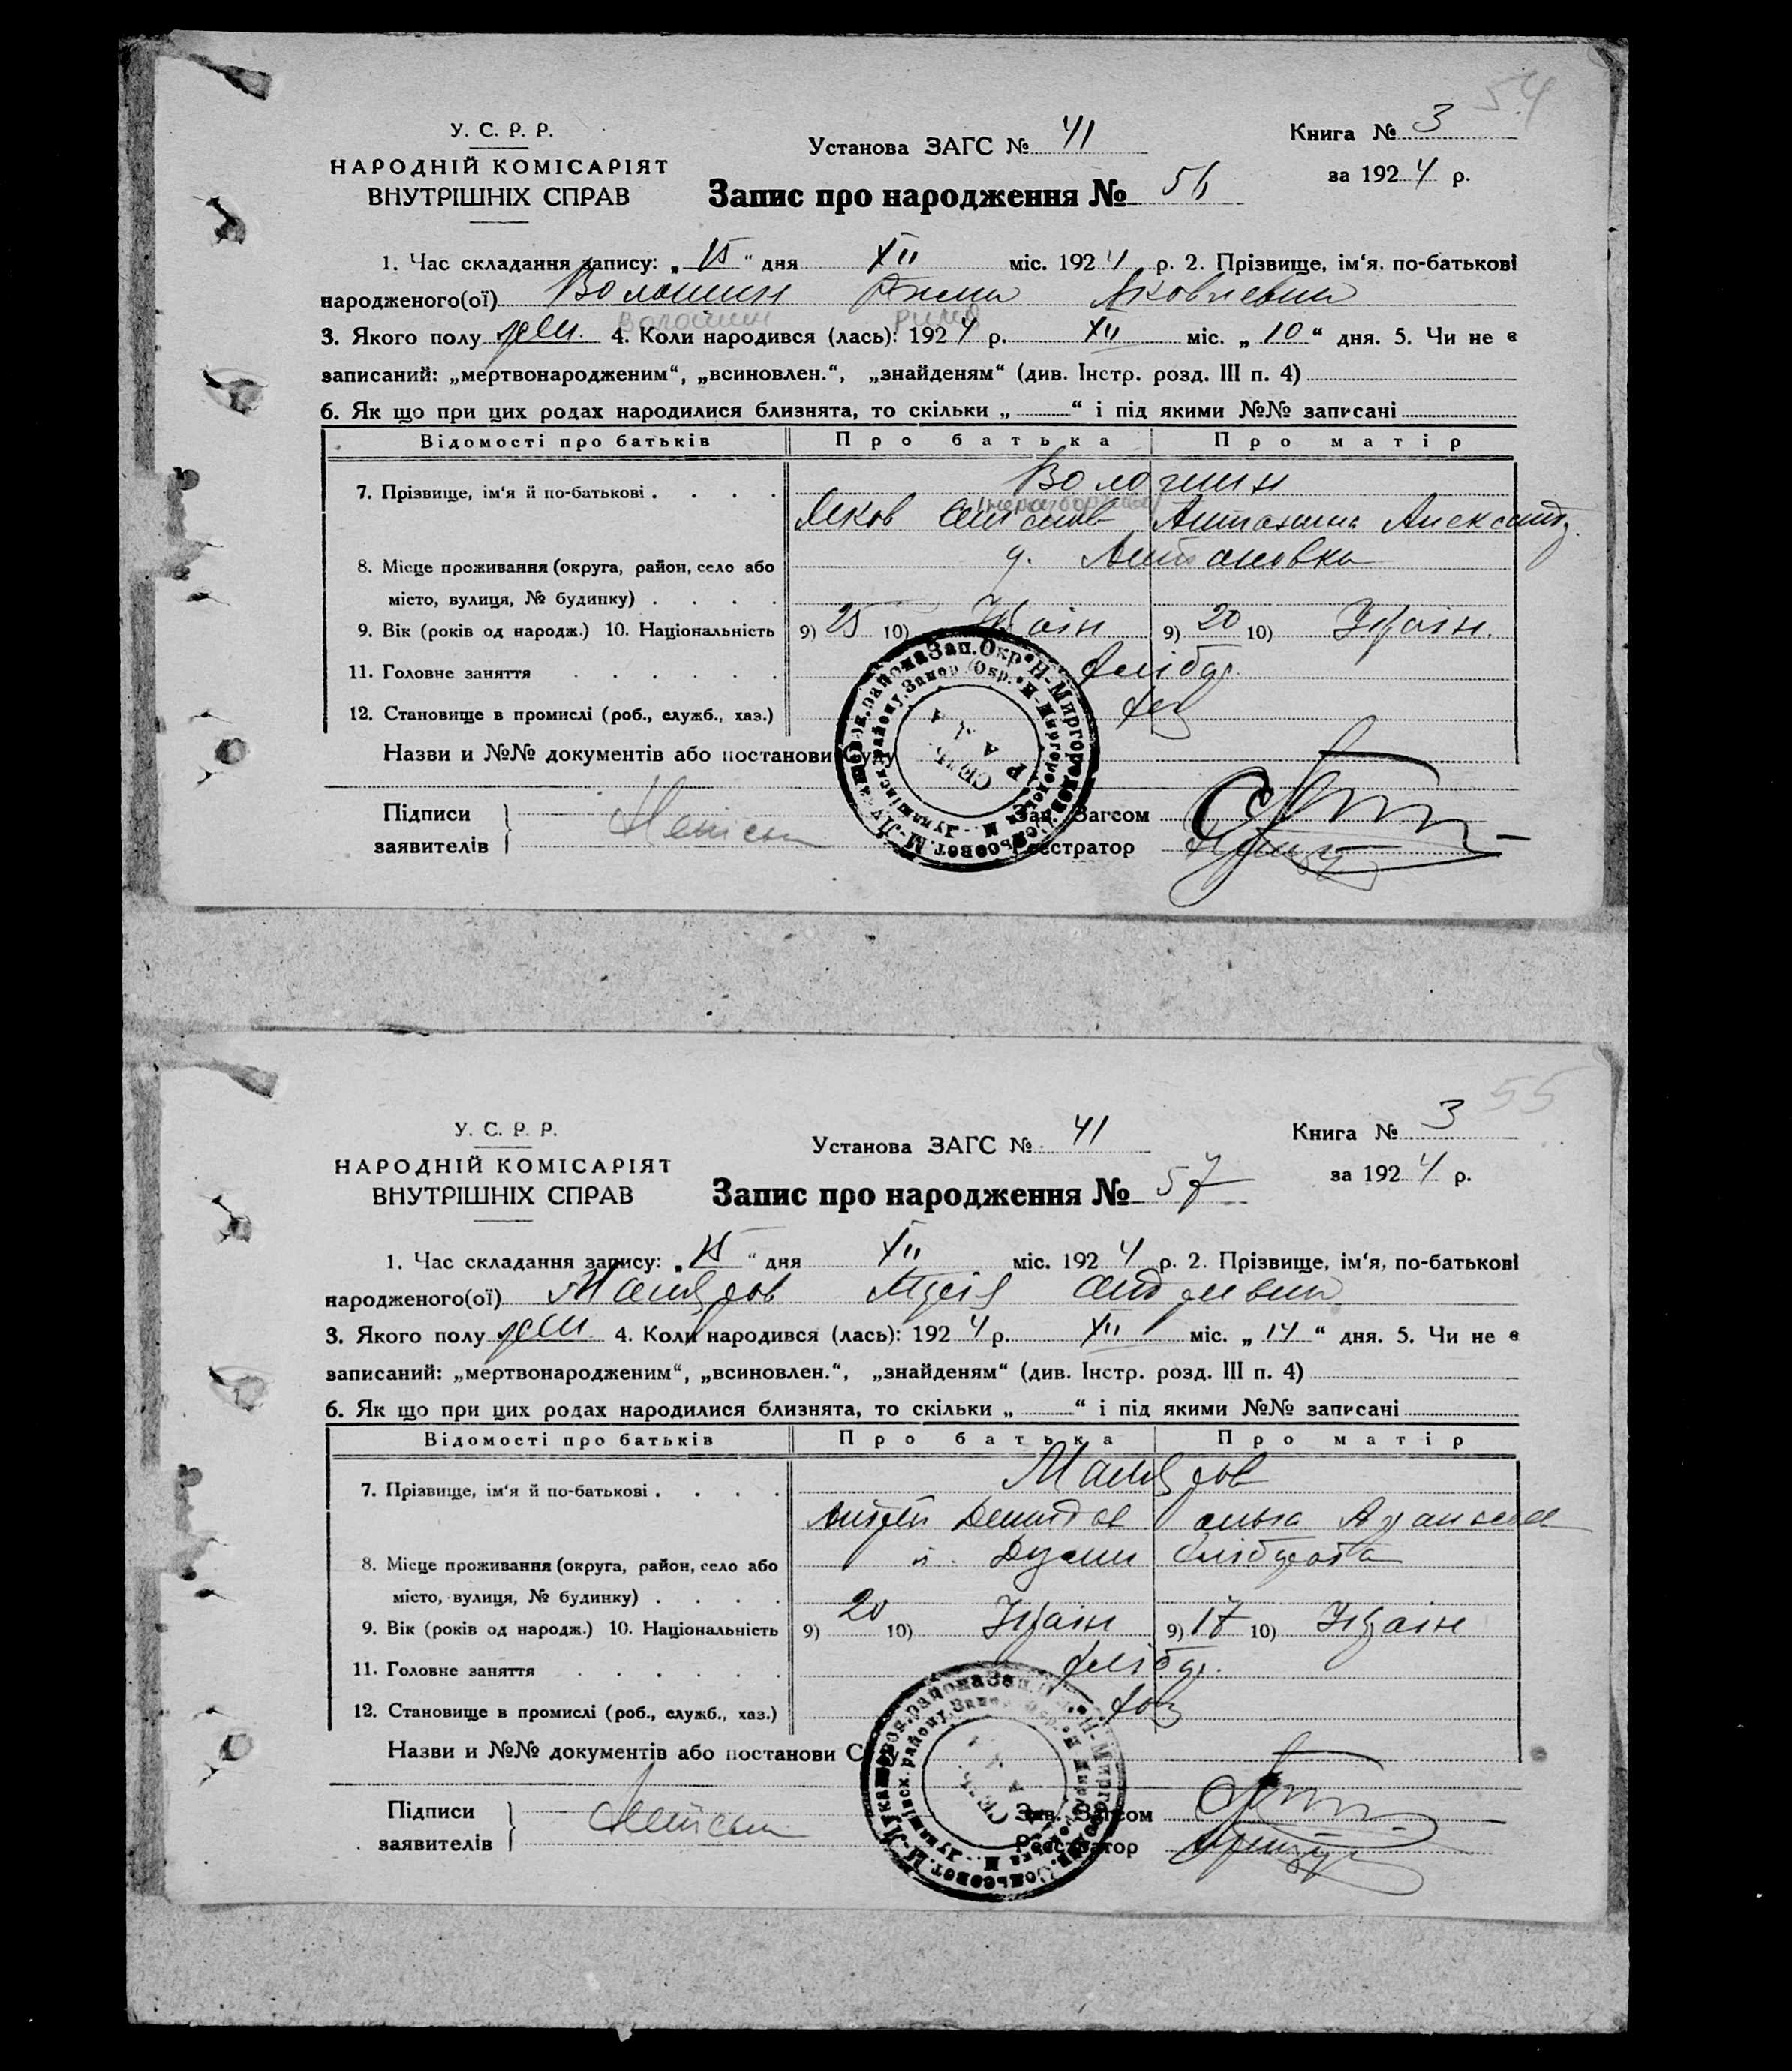 54
У. С. Р. Р.
НАРОДНІЙ КОМІСАРІЯТ
ВНУТРІШНІХ СПРАВ
Установа ЗАГС № 41
Книга № 3
за 1924 р.
Запис про народження № 56
1. Час складання запису: „15“ дня XII міс. 1924 р. 2. Прізвище, ім‘я, по-батькові
народженого(ої) Волошин Яковлевна
Волошин Рима
3. Якого полу жен. 4. Коли народився (лась): 1924 р. XII міс. „10“ дня. 5. Чи не є
записаний: „мертвонародженим“, „всиновлен.“, „знайденям“ (див. Інстр. розд. III п. 4)
6. Як що при цих родах народилися близнята, то скільки „ “ і під якими №№ записані
Відомості про батьків Про батька Про матір
7. Прізвище, ім‘я й по-батькові . . . . Волошин
Яков Антонина Александ.
8. Місце проживання (округа, район, село або
місто, вулиця, № будинку) . . . .
9. Вік (років од народж.) 10. Національність 9) 25 10) Украін 9) 20 10) Украін.
11. Головне заняття . . . . . . хлібор.
12. Становище в промислі (роб., служб., хаз.)
Назви и №№ документів або постанови Суду
Підписи
заявителів
Зав. Загсом
Реєстратор
55
У. С. Р. Р.
НАРОДНІЙ КОМІСАРІЯТ
ВНУТРІШНІХ СПРАВ
Установа ЗАГС № 41
Книга № 3
за 1924 р.
Запис про народження № 57
1. Час складання запису: „15“ дня XII міс. 1924 р. 2. Прізвище, ім‘я, по-батькові
народженого(ої)
3. Якого полу жен. 4. Коли народився (лась): 1924 р. XII міс. „14“ дня. 5. Чи не є
записаний: „мертвонародженим“, „всиновлен.“, „знайденям“ (див. Інстр. розд. III п. 4)
6. Як що при цих родах народилися близнята, то скільки „ “ і під якими №№ записані
Відомості про батьків Про батька Про матір
7. Прізвище, ім‘я й по-батькові . . . .
Андрей Демидов
8. Місце проживання (округа, район, село або
місто, вулиця, № будинку) . . . .
9. Вік (років од народж.) 10. Національність 9) 20 10) Украін 9) 17 10) Украін
11. Головне заняття . . . . . . хлібор.
12. Становище в промислі (роб., служб., хаз.)
Назви и №№ документів або постанови
Підписи
заявителів
Зав. Загсом
Реєстратор